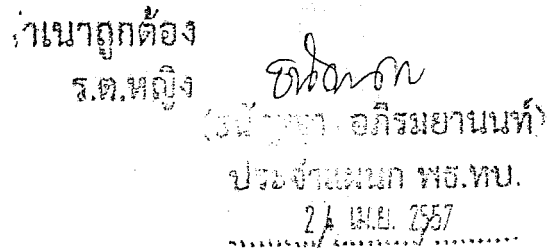 สำเนาถูกต้อง
ร.ต.หญิง
อภิรมยานนท์)
ประจำแผนก พธ.ทบ.
24 เม.ย. 2557